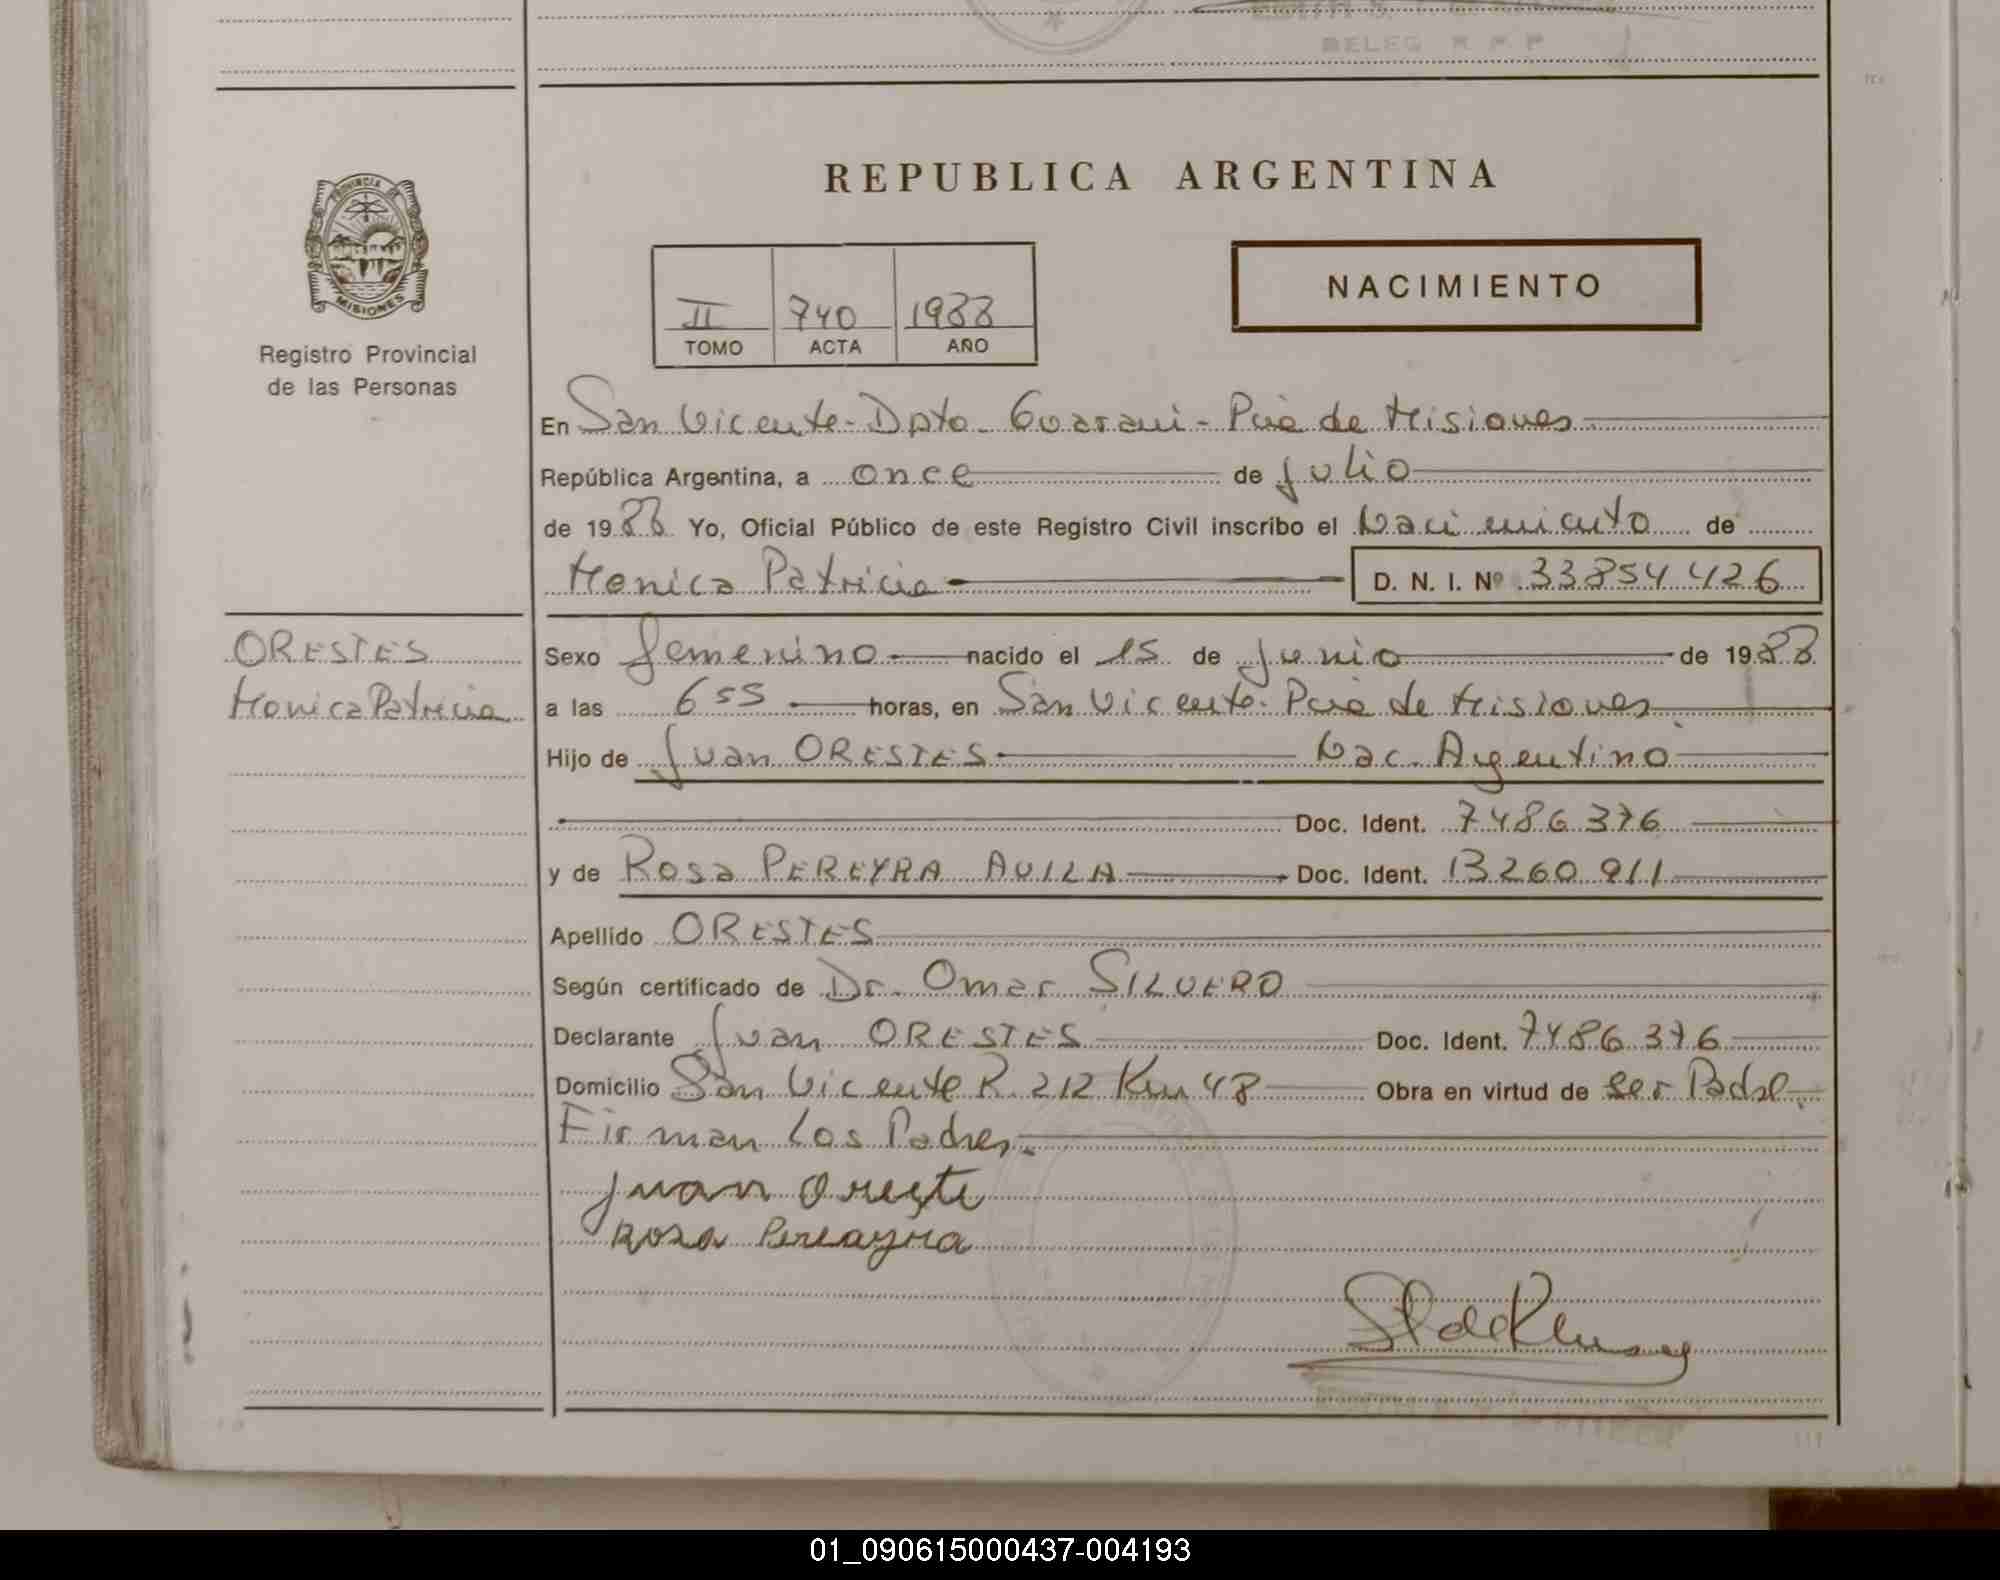 REPUBLICA ARGENTINA
PROVINCIA DE
MISIONES
Registro Provincial
de las Personas
II 740 1988
TOMO ACTA AÑO
NACIMIENTO
En San Vicente - Dpto. Guarani - Pcia de Misiones
República Argentina, a once de Julio
de 1988 Yo, Oficial Público de este Registro Civil inscribo el Nacimiento de
Monica Patricia D. N. I. Nº 33854426
ORESTES
Monica Patricia
Sexo femenino nacido el 15 de Junio de 1988
a las 6 55 horas, en San Vicente - Pcia de Misiones
Hijo de Juan ORESTES Nac. Argentino
Doc. Ident. 7486376
y de Rosa PEREYRA AVILA Doc. Ident. 13260911
Apellido ORESTES
Según certificado de Dr. Omar SILVERO
Declarante Juan ORESTES Doc. Ident. 7486376
Domicilio San Vicente R. 212 Km 48 Obra en virtud de Ser Padre.
Firman Los Padres.
Juan Oreste
Rosa Pereayra
01_090615000437-004193